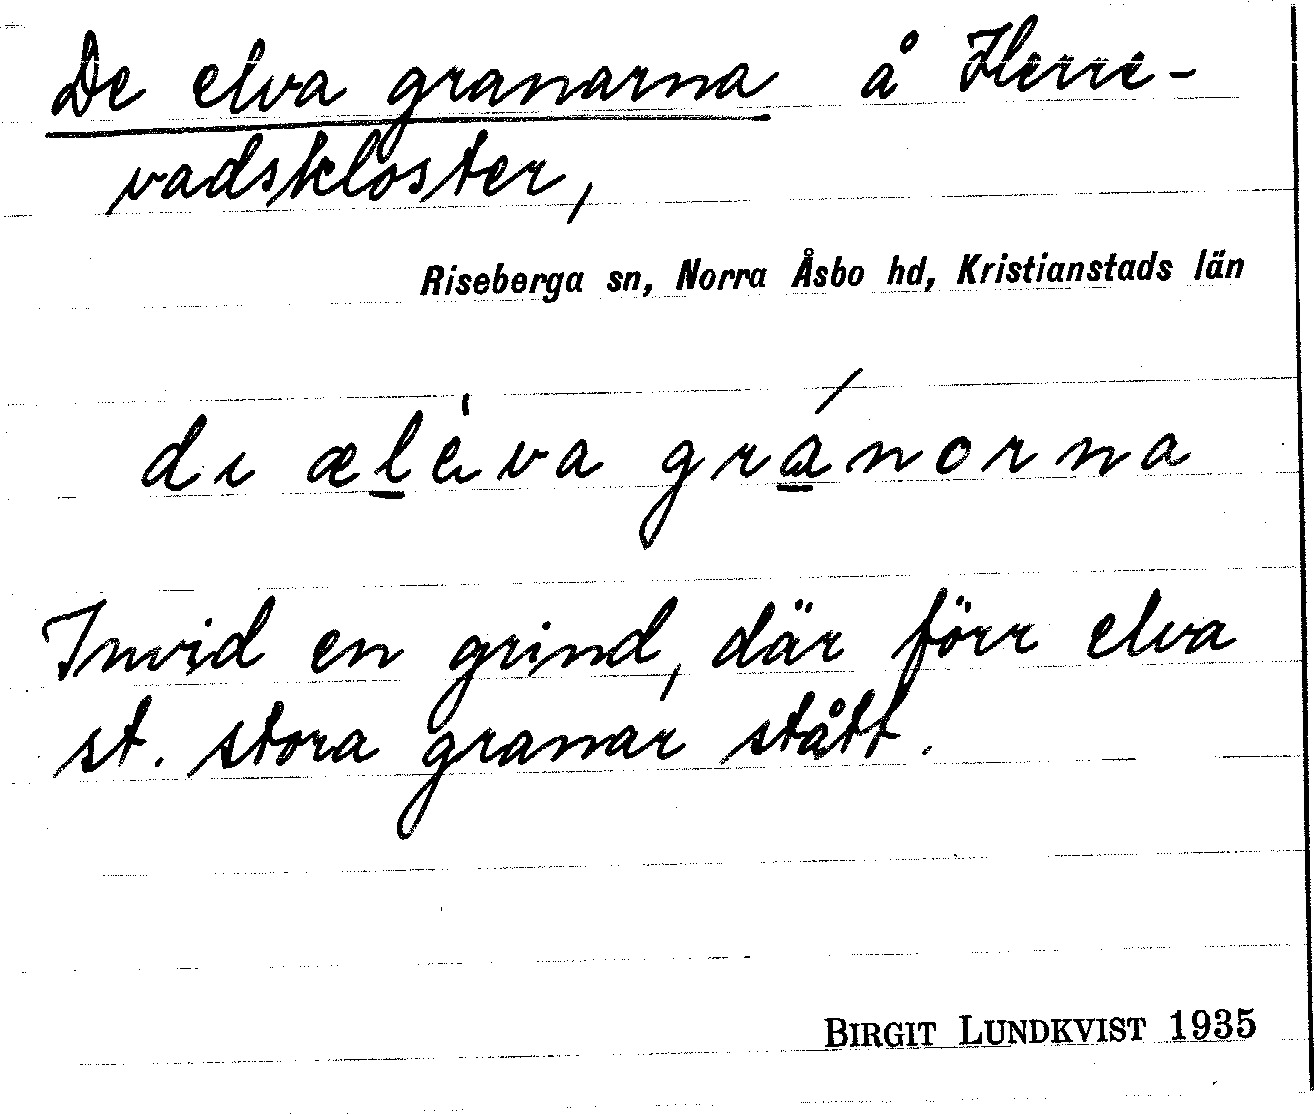 De elva granarna å Herre-
vadskloster,
Riseberga sn, Norra Åsbo hd, Kristianstads län
dɩ æl̲èva gránorna
Invid en grind, där förr elva
st. stora granar stått.
BIRGIT LUNDKVIST 1935